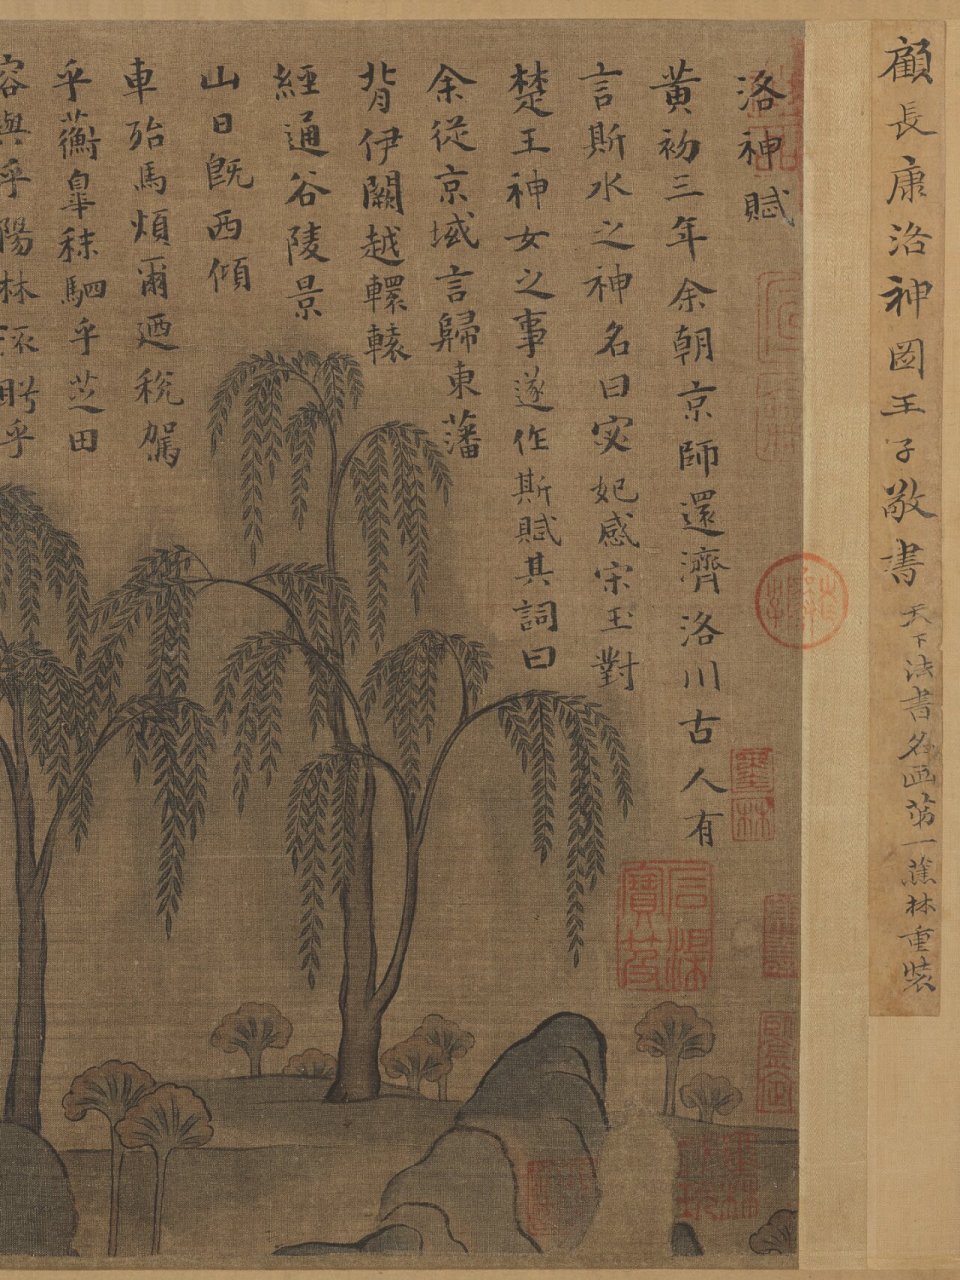 顧長康洛神圖王子敬書
天下法書名画第一蕉林重裝
洛神賦
黃初三年余朝京師還濟洛川古人有
言斯水之神名曰宓妃感宋玉對
楚王神女之事遂作斯賦其詞曰
余從京域言歸東藩
背伊闕越轘轅
經通谷陵景
山日旣西傾
車殆馬煩爾廼稅駕
乎蘅皐秣駟乎芝田
容與乎陽林流眄乎
蕉林